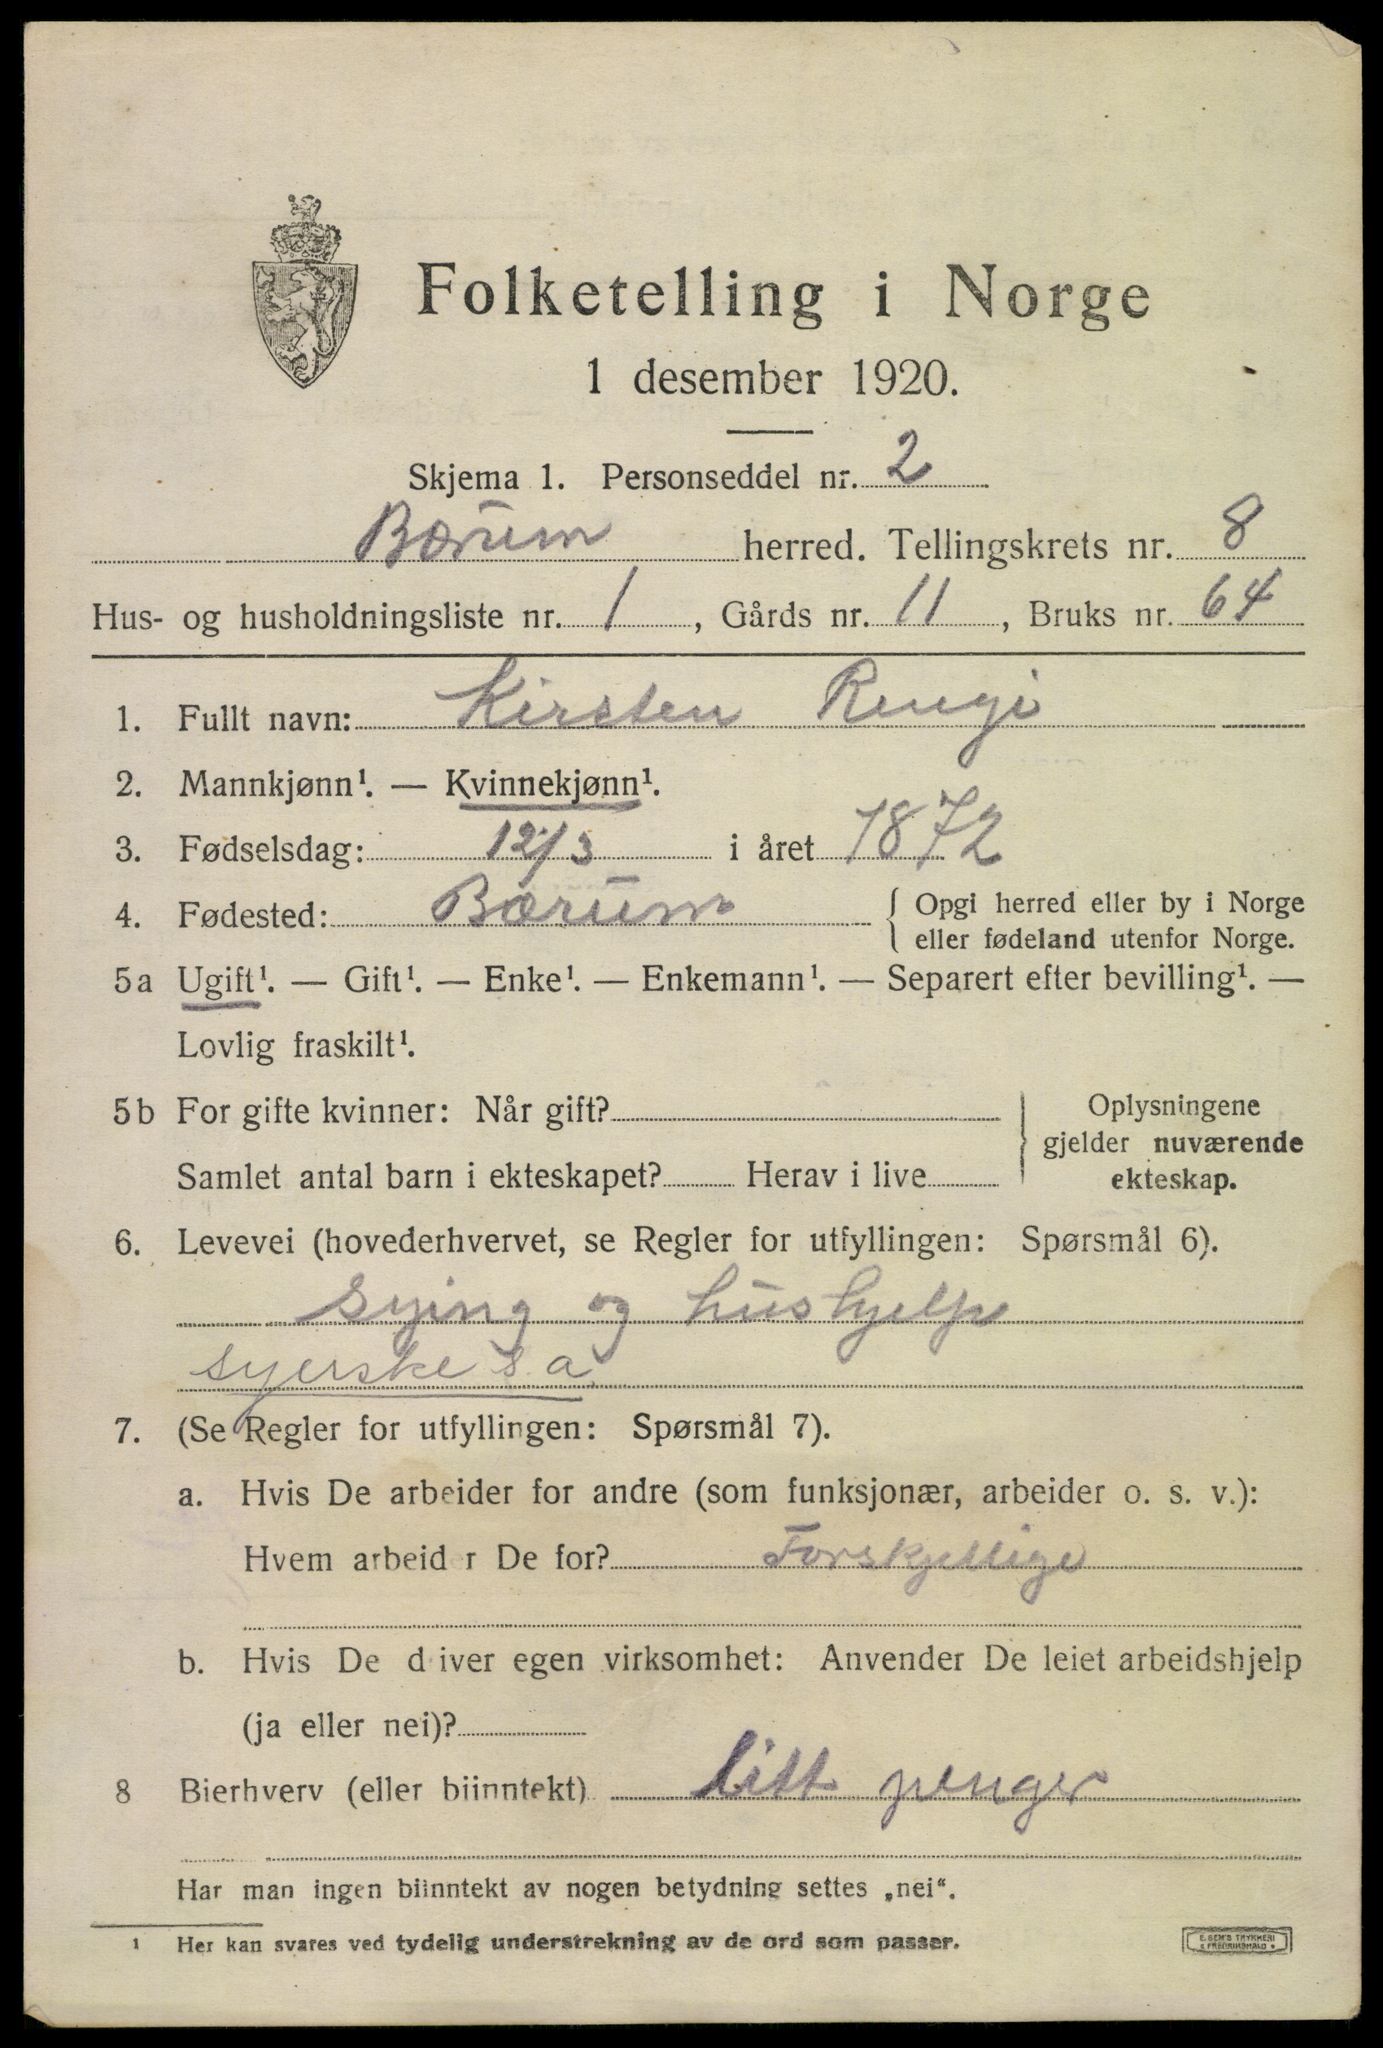 Folketelling i Norge
1 desember 1920.
Skjema 1. Personseddel nr. 2
Bærum herred. Tellingskrets nr. 8
Hus- og husholdningsliste nr. 1, Gårds nr. 11, Bruks nr. 64
1. Fullt navn: Kirsten Renge
2. Mannkjønn¹. — Kvinnekjønn¹.
3. Fødselsdag: 12/3 i året 1872
4. Fødested: Bærum { Opgi herred eller by i Norge
eller fødeland utenfor Norge.
5a Ugift¹. — Gift¹. — Enke¹. — Enkemann¹. — Separert efter bevilling¹. —
Lovlig fraskilt¹.
5b For gifte kvinner: Når gift? } Oplysningene
gjelder nuværende
Samlet antal barn i ekteskapet? Herav i live ekteskap.
6. Levevei (hovederhvervet, se Regler for utfyllingen: Spørsmål 6).
Sying og hushjelp
syerske s.a
7. (Se Regler for utfyllingen: Spørsmål 7).
a. Hvis De arbeider for andre (som funksjonær, arbeider o. s. v.):
Hvem arbeid r De for? Forskjellige
b. Hvis De d iver egen virksomhet: Anvender De leiet arbeidshjelp
(ja eller nei)?
8 Bierhverv (eller biinntekt) litt penger
Har man ingen biinntekt av nogen betydning settes „nei".
¹ Her kan svares ved tydelig understrekning av de ord som passer.
E. SEM'S TRYKKERI
FREDRIKSHALD